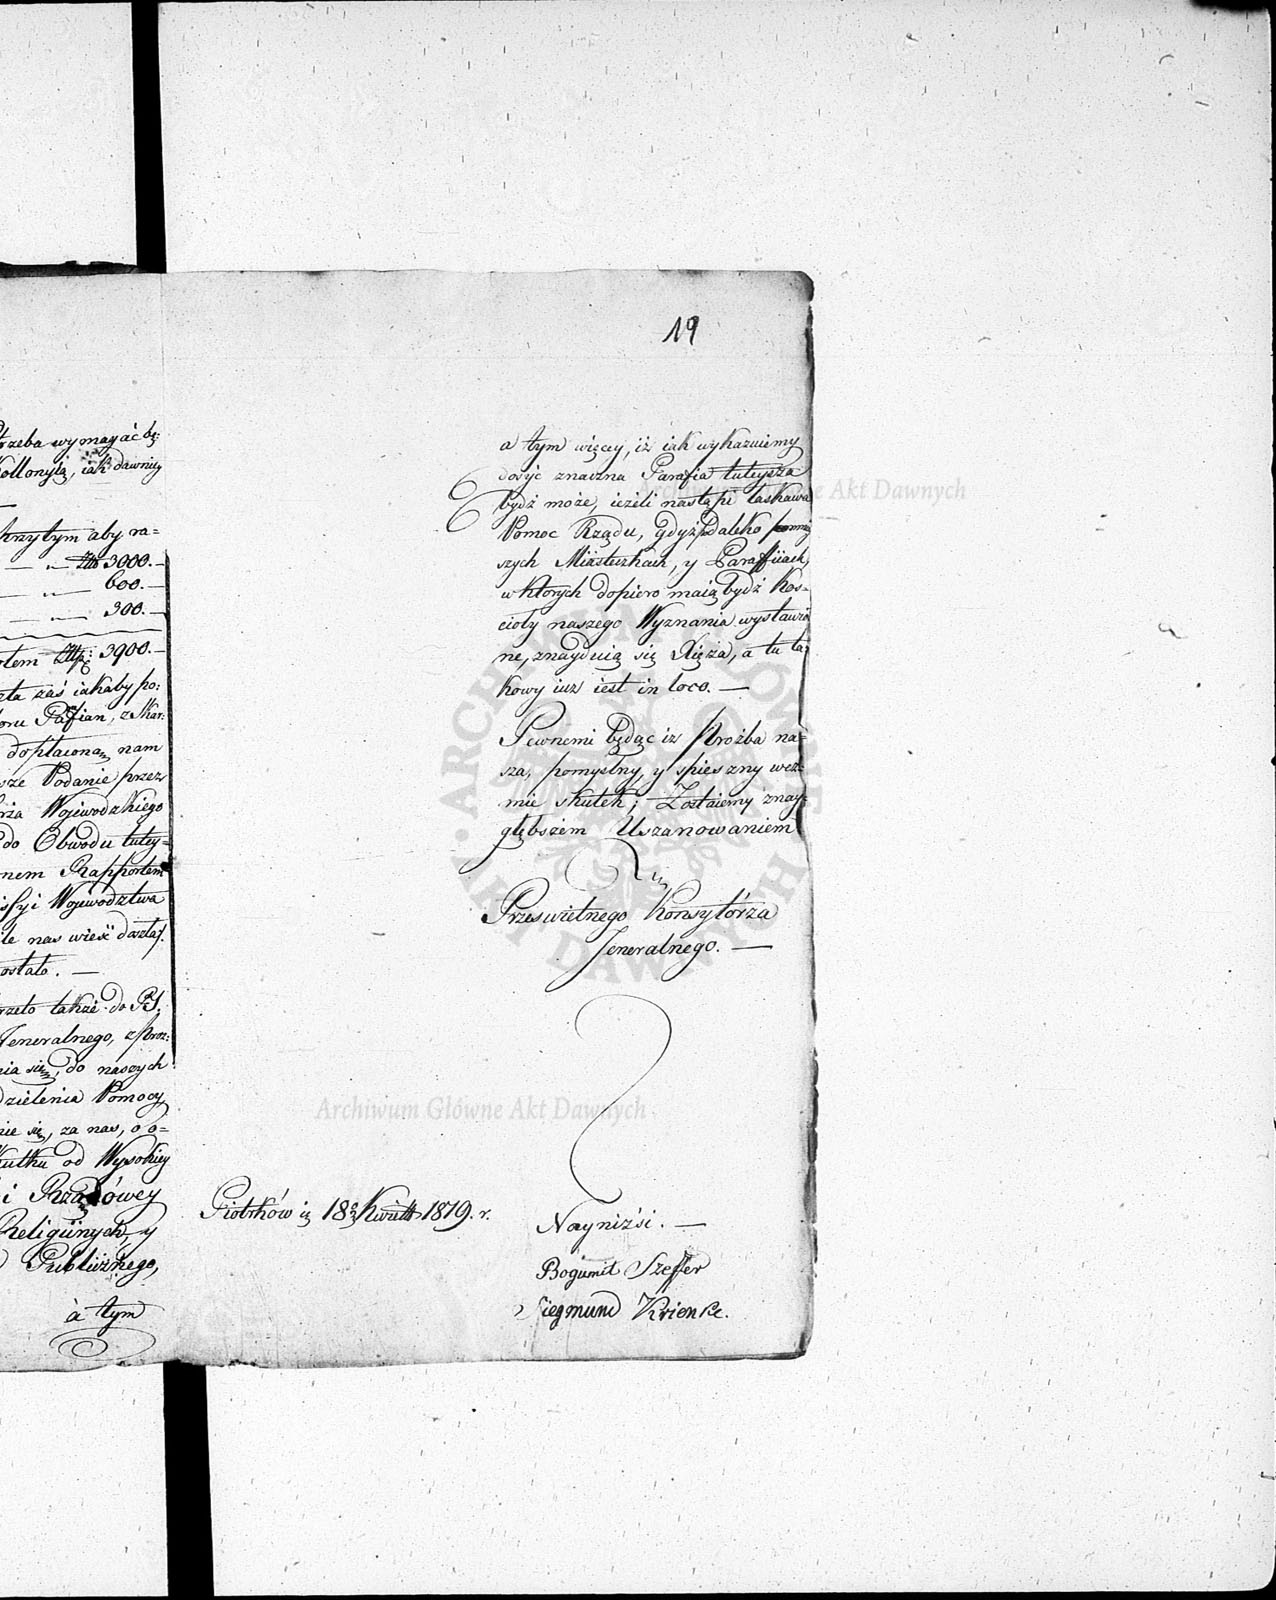 trzeba wymagać bę:
Kollonyią, iak dawniey
krzytym aby ra=
— „ — Złł 3000. —
— „ — 600. —
— „ — 300. —
3900. —
zta zaś iakaby po:
doplaconą nam
sze Podanie przez
Woiewodzkiego
do Obwodu tutey=
nem Rapportem
issyi Woiewodztwa
ile nas wieść doszła,
ostało. —
rzeto także do PJ.
Jeneralnego, z proz:
nia się do naszych
dzielenia Pomocy
nie się, za nas, o o=
kutku od Wysokiey
i Rządowey
Religiinych, y
Publicznego,
à tym
19
a tym więcey, iż iak wykazuiemy
dosyć znaczna Parafia tuteysza
bydź może, ieżeli nastąpi łaskawa
Pomoc Rządu, gdyż w daleko
szych Miasteczkach, y Paraffiiach,
w których dopiero maią bydź Koś=
cioły naszego Wyznania wystawio
ne, znaydują się Xięża, a tu ta
kowy iuż iest in loco. —
Pewnemi będąc iż Proźba na=
sza, pomyślny, y spieszny weź=
mie skutek; Zostaiemy z nay=
głębszem Uszanowaniem
Prześwietnego Konsytorza
Jeneralnego. —
Piotrków 18 Kwiet 1819. r.
Nayniżśi. —
Bogumił Szeffer
Siegmund Krienke.
Archiwum Główne Akt Dawnych
Archiwum Główne Akt Dawnych
ARCHIWUM GŁÓWNE AKT DAWNYCH